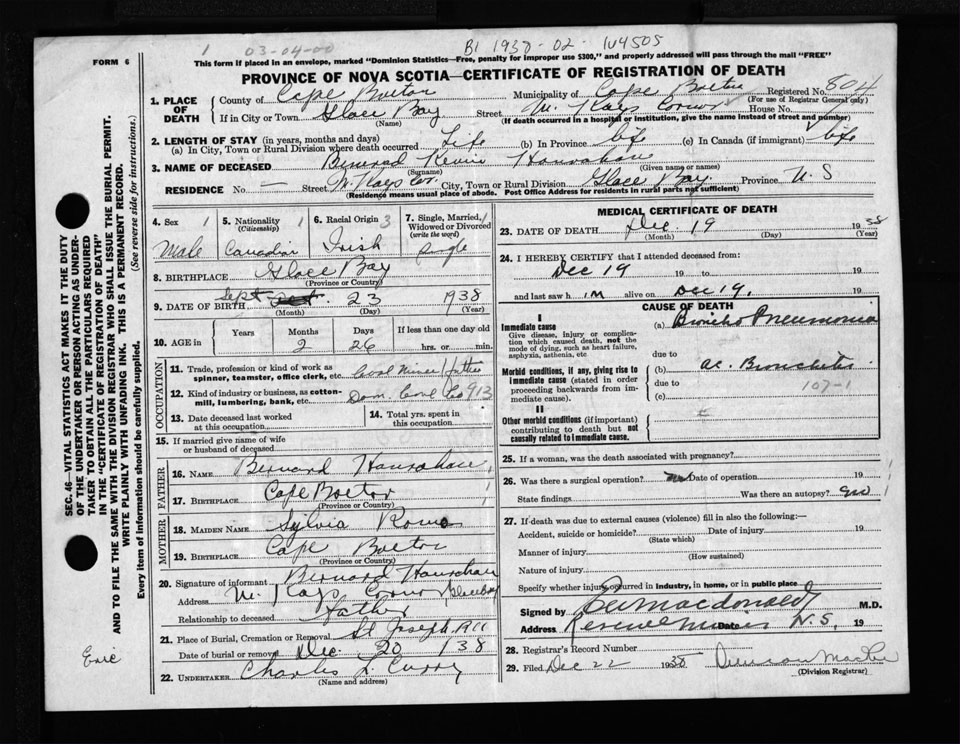 1 03-04-00 B1 1938-02-104505
FORM 6
This form if placed in an envelope, marked "Dominion Statistics—Free, penalty for improper use $300," and properly addressed will pass through the mail "FREE"
PROVINCE OF NOVA SCOTIA—CERTIFICATE OF REGISTRATION OF DEATH
1. PLACE OF DEATH
County of Cape Breton Municipality of Cape Breton Registered No. 804
(For use of Registrar General only)
If in City or Town Glace Bay Street McKays Corner House No.
(Name) (If death occurred in a hospital or institution, give the name instead of street and number)
2. LENGTH OF STAY (in years, months and days)
(a) In City, Town or Rural Division where death occurred Life (b) In Province life (c) In Canada (if immigrant) life
3. NAME OF DECEASED Bernard Kevin Hanrahan
(Surname) (Given name or names)
RESIDENCE No. — Street McKays Cor. City, Town or Rural Division Glace Bay. Province N. S
(Residence means usual place of abode. Post Office Address for residents in rural parts not sufficient)
4. Sex 1 Male
5. Nationality 1 (Citizenship) Canadian
6. Racial Origin 3 Irish
7. Single, Married, Widowed or Divorced 1 (write the word) Single
8. BIRTHPLACE Glace Bay
(Province or Country)
9. DATE OF BIRTH Sept 23 1938
(Month) (Day) (Year)
10. AGE in Years Months 2 Days 26 If less than one day old hrs. or min.
OCCUPATION
11. Trade, profession or kind of work as spinner, teamster, office clerk, etc. Coal Miner Father
12. Kind of industry or business, as cotton-mill, lumbering, bank, etc. Dom. Coal Co 913
13. Date deceased last worked at this occupation
14. Total yrs. spent in this occupation
15. If married give name of wife or husband of deceased
FATHER
16. NAME Bernard Hanrahan 1
17. BIRTHPLACE Cape Breton 1
(Province or Country)
MOTHER
18. MAIDEN NAME Sylvia
19. BIRTHPLACE Cape Breton
(Province or Country)
20. Signature of informant Bernard Hanrahan
Address McKays Corner Glace Bay
Relationship to deceased Father
21. Place of Burial, Cremation or Removal St Joseph
Date of burial or removal Dec. 20 1938
22. UNDERTAKER Charles J. Curry
(Name and address)
MEDICAL CERTIFICATE OF DEATH
23. DATE OF DEATH Dec. 19 1938
(Month) (Day) (Year)
24. I HEREBY CERTIFY that I attended deceased from:
Dec 19 19 to 19
and last saw h im alive on Dec 19, 19
CAUSE OF DEATH
I
Immediate cause
Give disease, injury or complication which caused death, not the mode of dying, such as heart failure, asphyxia, asthenia, etc
(a) Broncho Pneumonia
due to
Morbid conditions, if any, giving rise to immediate cause (stated in order proceeding backwards from immediate cause).
(b) ac. Bronchitis
due to 107-1
(c)
II
Other morbid conditions (if important) contributing to death but not causally related to immediate cause.
25. If a woman, was the death associated with pregnancy?
26. Was there a surgical operation? no Date of operation 19
State findings Was there an autopsy? no
27. If death was due to external causes (violence) fill in also the following:—
Accident, suicide or homicide? Date of injury 19
(State which)
Manner of injury
(How sustained)
Nature of injury
Specify whether injury occurred in industry, in home, or in public place
Signed by Macdonald M.D.
Address Reserve Mines Date N.S. 19
28. Registrar's Record Number
29. Filed Dec 22 1938
(Division Registrar)
SEC. 46—VITAL STATISTICS ACT MAKES IT THE DUTY
OF THE UNDERTAKER OR PERSON ACTING AS UNDER-
TAKER TO OBTAIN ALL THE PARTICULARS REQUIRED
IN THE "CERTIFICATE OF REGISTRATION OF DEATH"
AND TO FILE THE SAME WITH THE DIVISION REGISTRAR WHO SHALL ISSUE THE BURIAL PERMIT.
WRITE PLAINLY WITH UNFADING INK. THIS IS A PERMANENT RECORD.
Every item of information should be fully supplied. (See reverse side for instructions.)